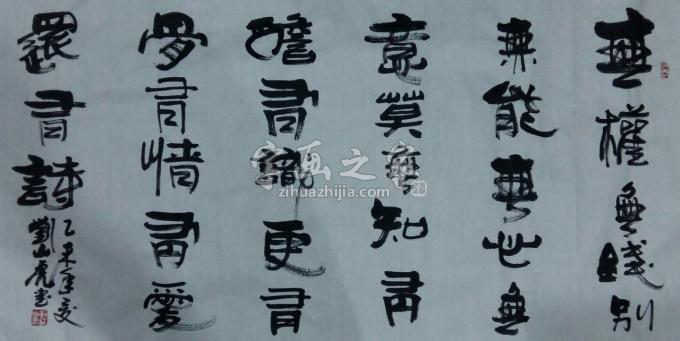 無權無錢別
無能無心無
意莫無知有
膽有識更有
骨有情有愛
還有詩
乙未年夏
劉山虎書
字画之家
zihuazhijia.com